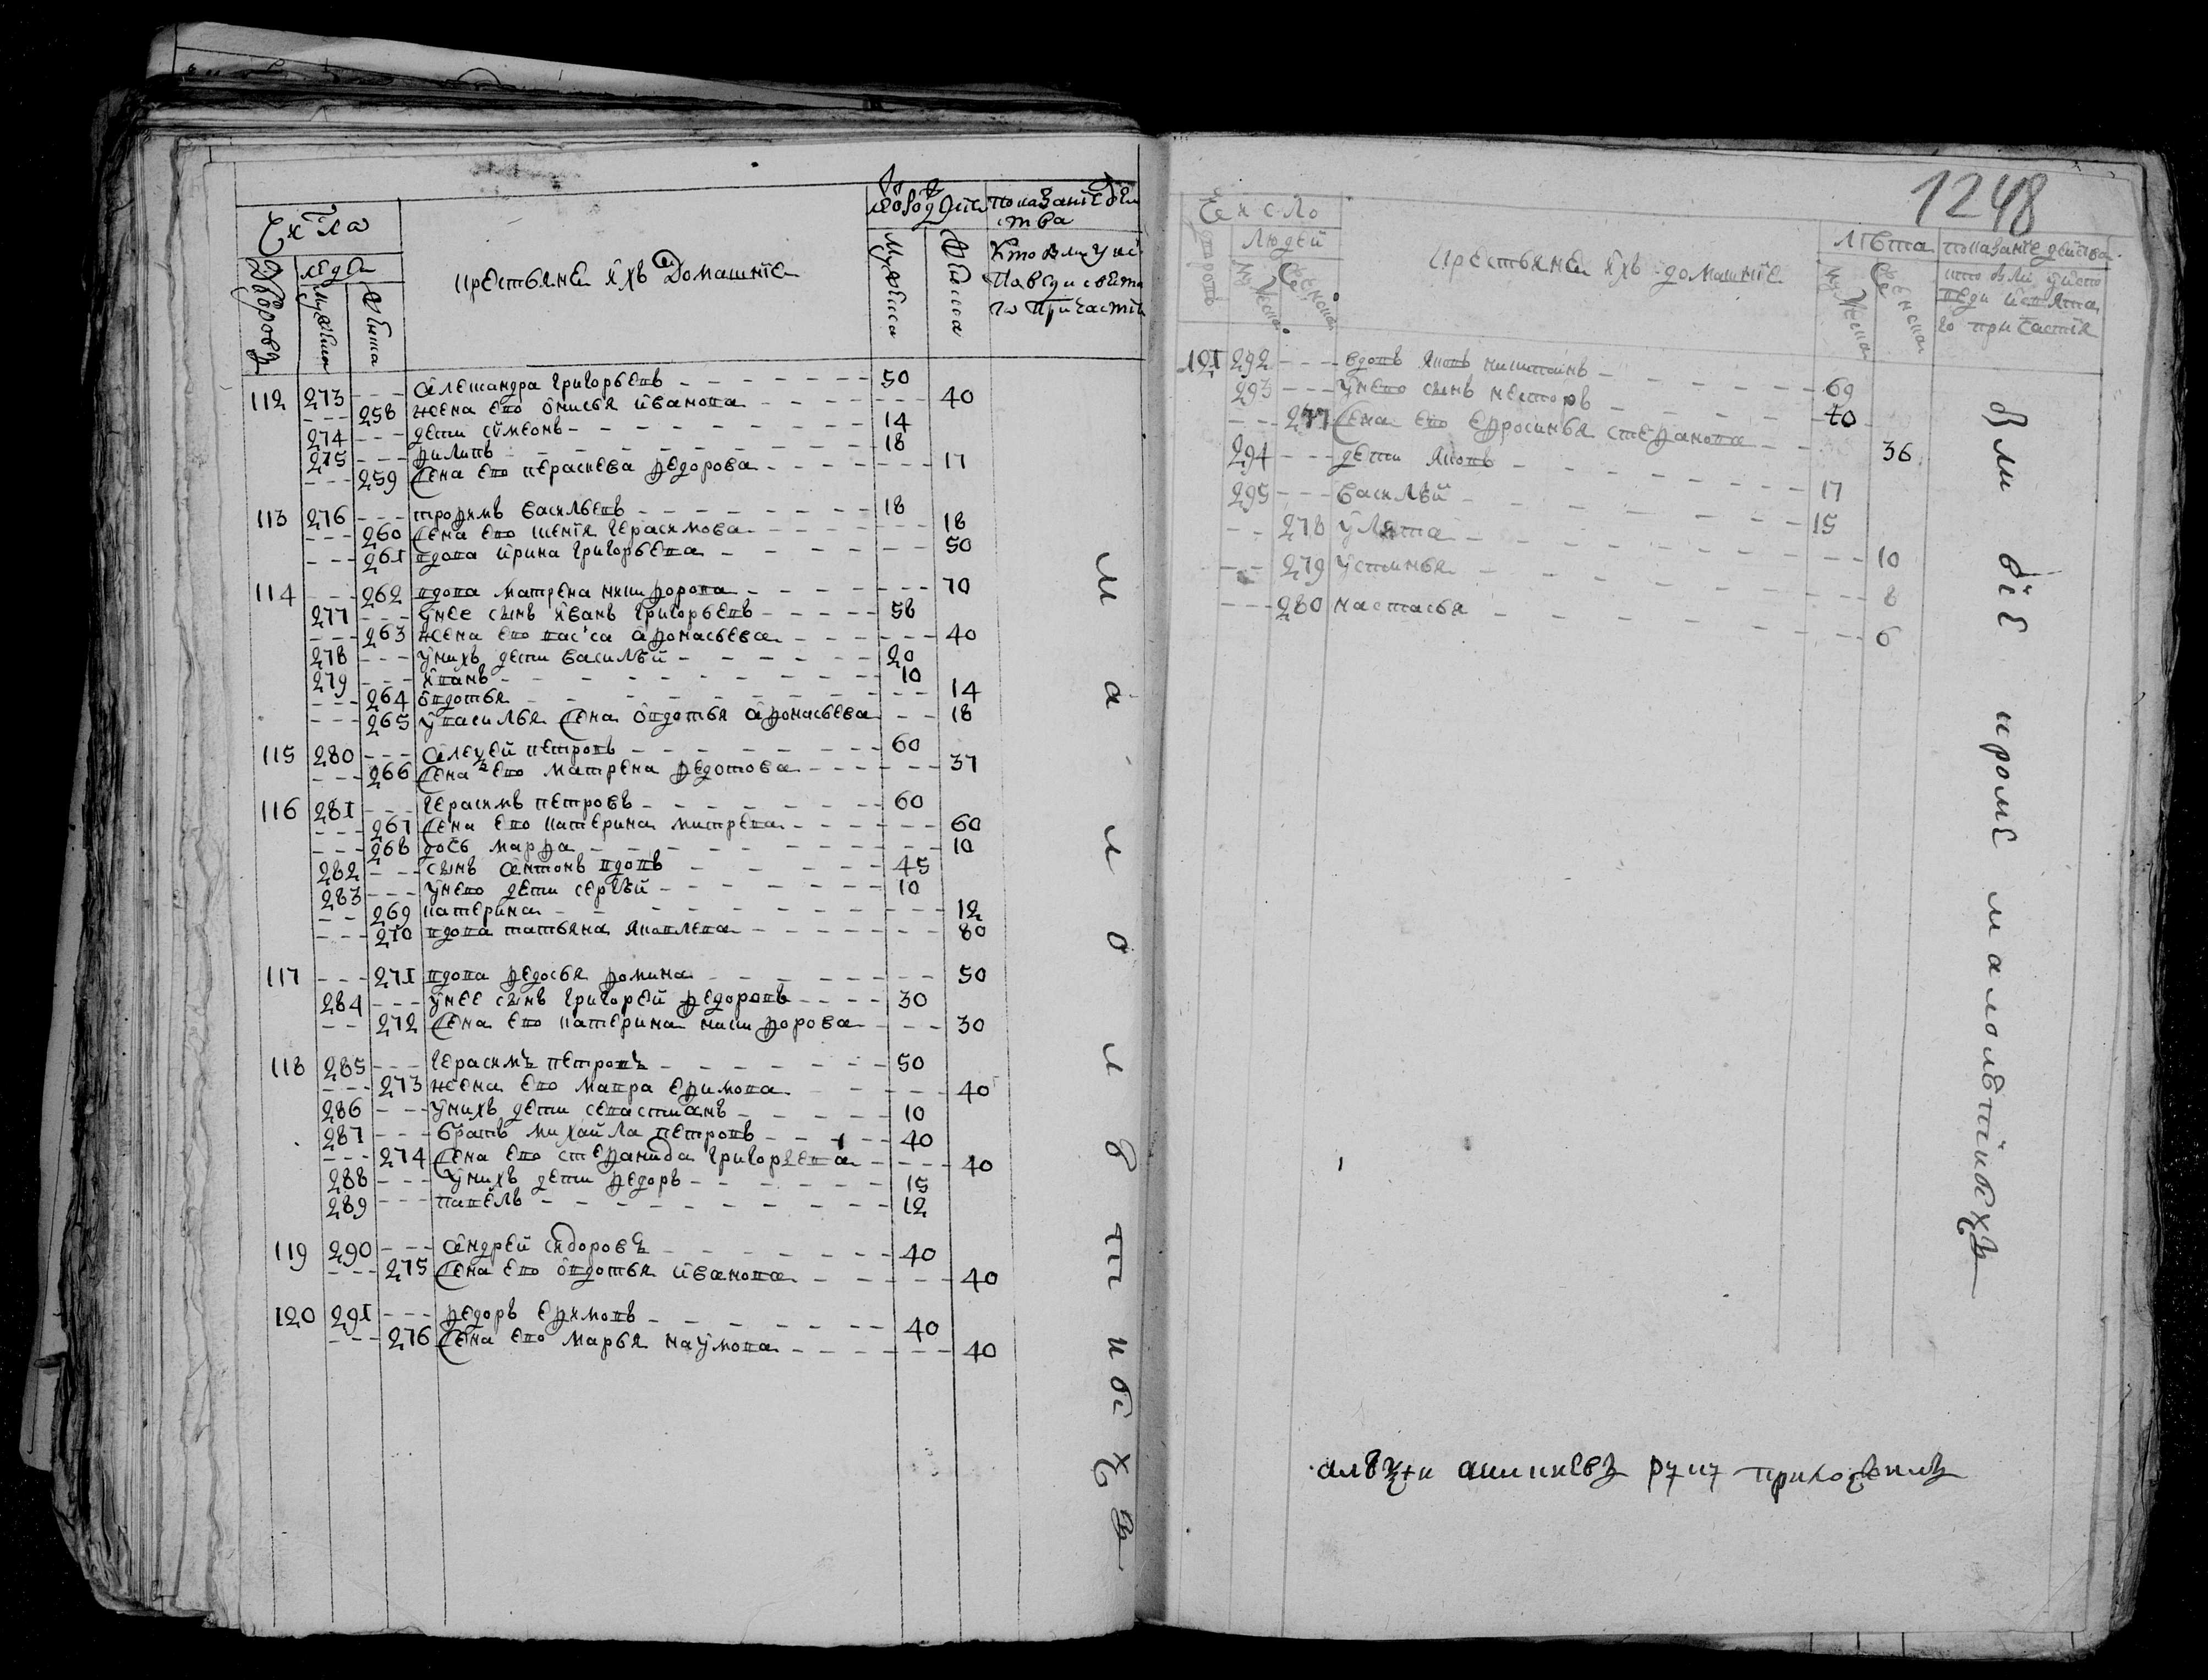 Числа
Дворовъ
людей
крестьяне и ихъ Домашние
показание действа
Кто был у исповеди и святаго причастия
112 273 --- александра григорьевъ --- 50
--- 258 жена ево анисья иванова --- 40
274 --- дети симеонъ --- 14
275 --- филипъ --- 18
--- 259 жена ево параскева федорова --- 17
113 276 --- трофимъ васильевъ --- 18
--- 260 жена ево герасимова --- 18
--- 261 вдова ирина григорьева --- 50
114 --- 262 вдова матрена никифорова --- 70
277 --- у нее сынъ иванъ григорьевъ --- 58
--- 263 жена ево васса афонасьева --- 40
278 --- у нихъ дети василей --- 20
279 --- иванъ --- 10
--- 264 овдотья --- 14
--- 265 у василья жена овдотья афонасьева --- 18
115 280 --- алексей петровъ --- 60
--- 266 жена ево матрена федотова --- 37
116 281 --- герасимъ петровъ --- 60
--- 267 жена ево катерина митрева --- 60
--- 268 дочь марфа --- 10
282 --- сынъ антонъ вдовъ --- 45
283 --- у нево дети сергей --- 10
--- 269 катерина --- 12
--- 270 вдова татьяна яковлева --- 80
117 --- 271 вдова федосья фомина --- 50
284 --- у нее сынъ григорей федоровъ --- 30
--- 272 жена ево катерина никифорова --- 30
118 285 --- герасимъ петровъ --- 50
--- 273 жена ево мавра ефимова --- 40
286 --- у нихъ дети севастиянъ --- 10
287 --- братъ михайла петровъ --- 40
--- 274 жена ево стефанида григорьева --- 40
288 --- у нихъ дети федоръ --- 15
289 --- павелъ --- 12
119 290 --- андрей сидоровъ --- 40
--- 275 жена ево овдотья иванова --- 40
120 291 --- федоръ ефимовъ --- 40
--- 276 жена ево марья наумова --- 40
малолѣтнихъ
1248
Число
дворовъ
людей
Мужеска
Женска
крестьяне и ихъ домашние
лѣта
Мужеска
Женска
показание действа
кто был у исповеди и святаго причастия
121 292 --- вдовъ яковъ никитинъ --- 69
293 --- у нево сынъ несторъ --- 40
--- 277 жена ево ефросинья стефанова --- 36
294 --- дети яковъ --- 17
295 --- василей --- 15
--- 278 улята --- 10
--- 279 устинья --- 8
--- 280 настасья --- 6
были все кроме малолѣтнихъ
приложилъ